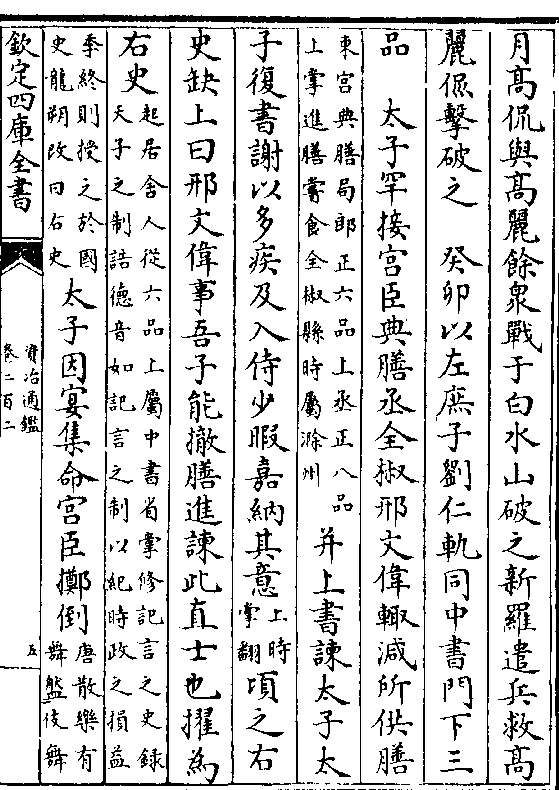 月高侃與高麗餘衆戰于白水山破之新羅遣兵救高
麗侃擊破之　癸卯以左庶子劉仁軌同中書門下三
品　太子罕接宫臣典膳丞全椒邢文偉輙減所供膳
東宫典膳局郎正六品上丞正八品
上掌進膳嘗食全椒縣時屬滁州
并上書諫太子太
子復書謝以多疾及入侍少暇嘉納其意
上時
掌翻
頃之右
史缺上曰邢文偉事吾子能撤膳進諫此直士也擢為
右史
起居舍人從六品上屬中書省掌修記言之史錄
天子之制誥德音如記言之制以紀時政之損益
季終則授之於國
史龍朔改曰右史
太子因宴集命宫臣擲倒
唐散樂有
舞盤伎舞
欽定四庫全書
資治通鑑
卷二百二
五